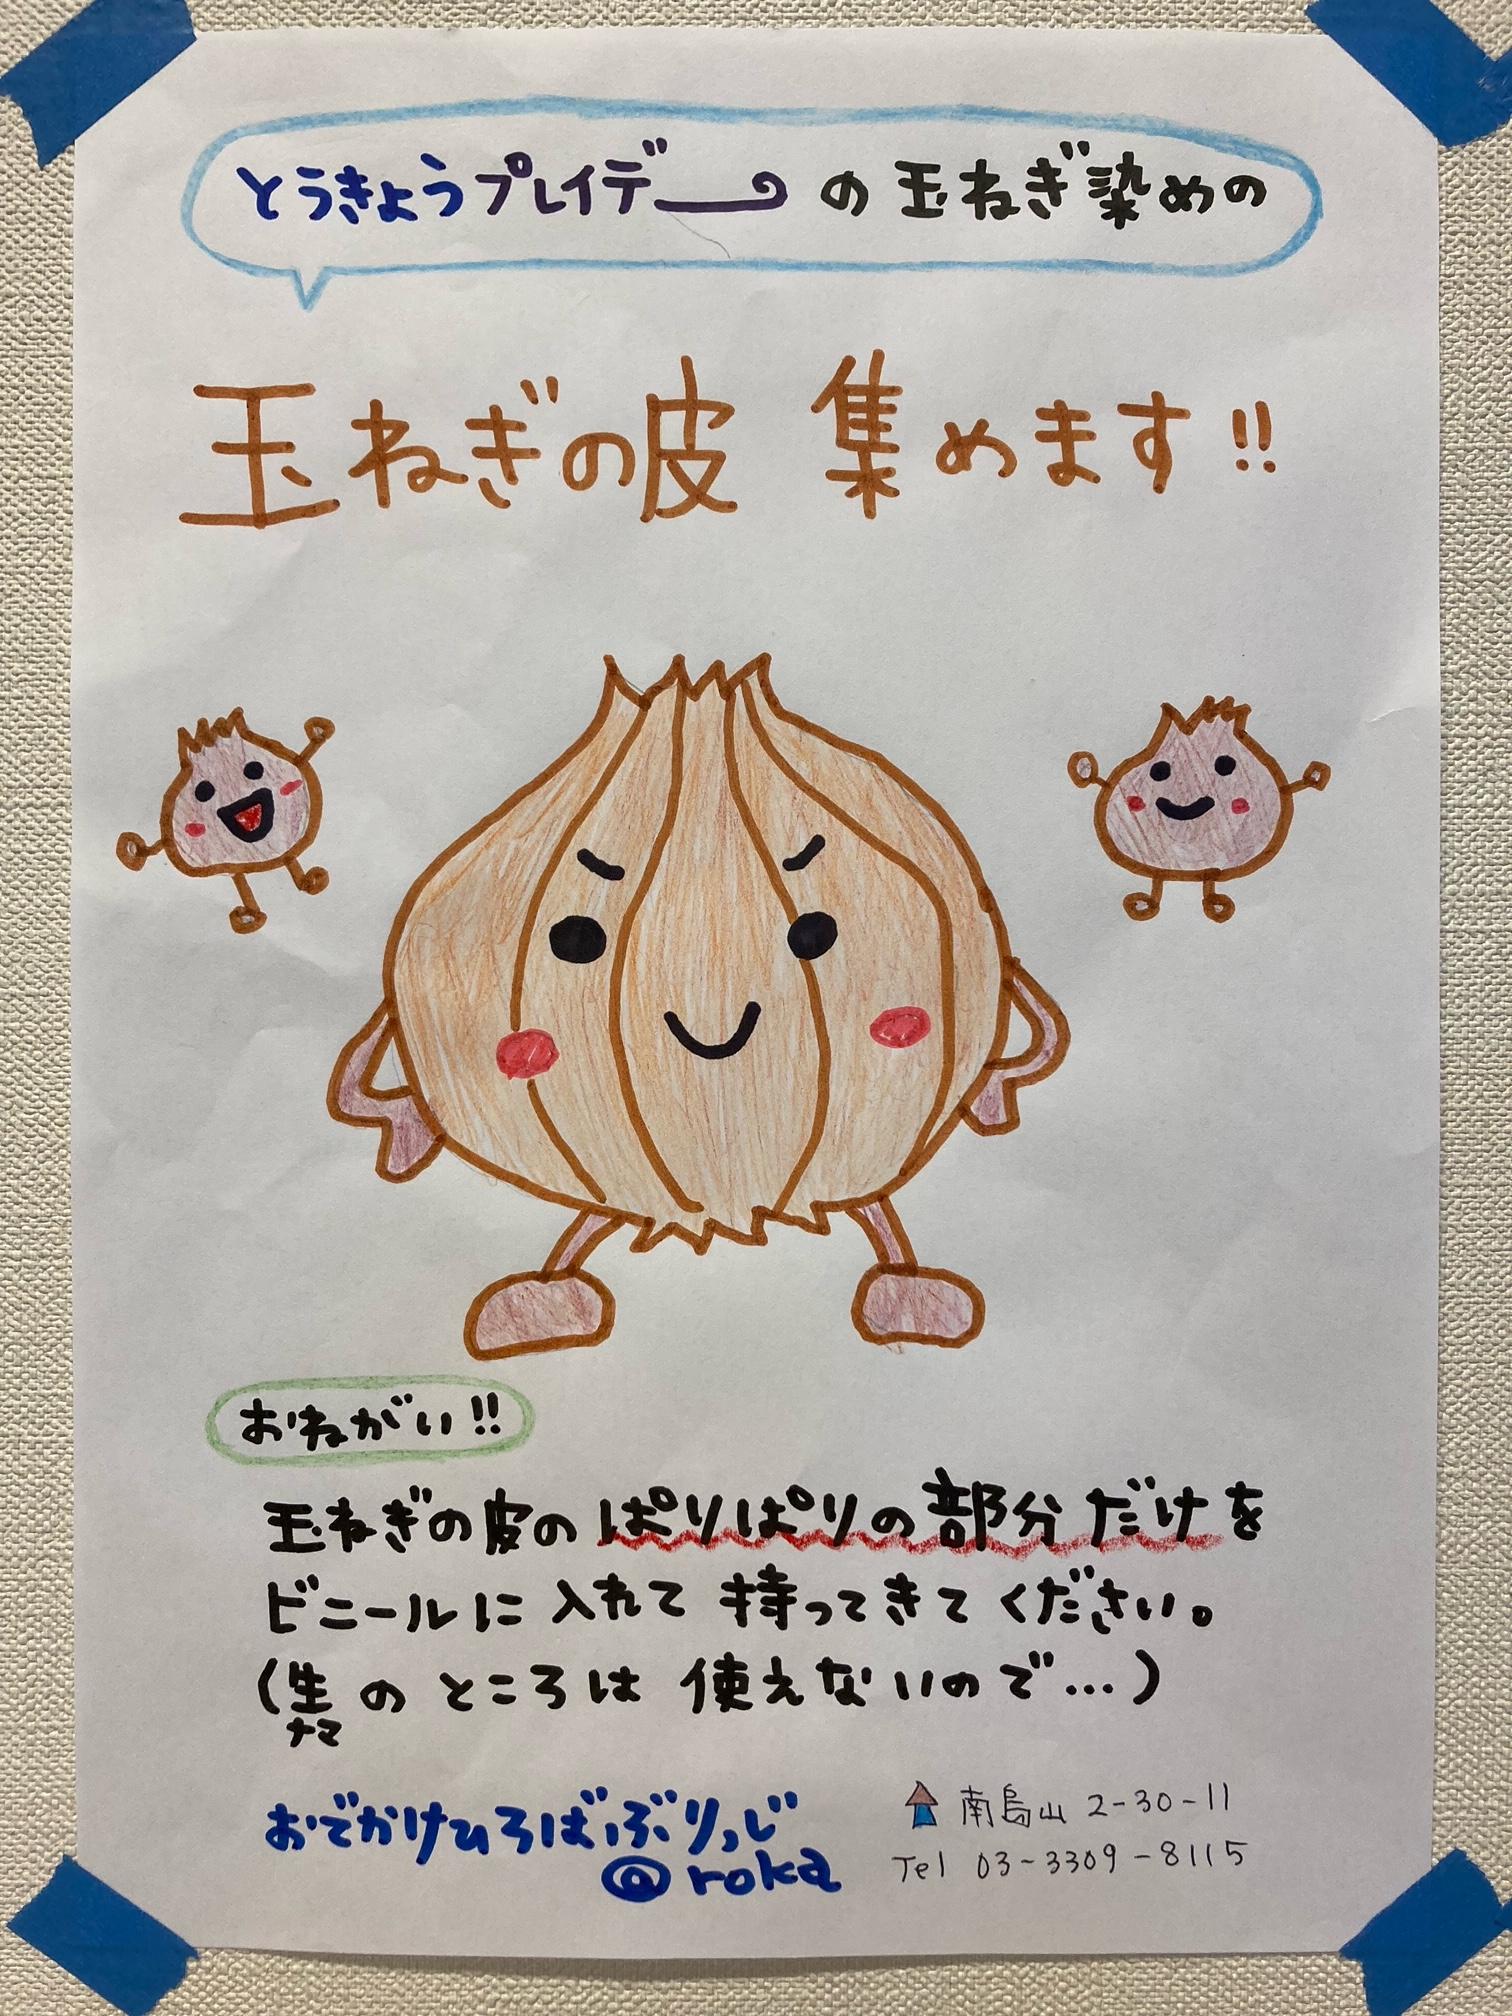 とうきょうプレイデーの玉ねぎ染めの
玉ねぎの皮 集めます!!
おねがい!!
玉ねぎの皮のぱりぱりの部分だけを
ビニールに入れて持ってきてください。
(生のところは使えないので…)
ナマ
おでかけひろばぶりっじ
@roka
南烏山 2-30-11
Tel 03-3309-8115